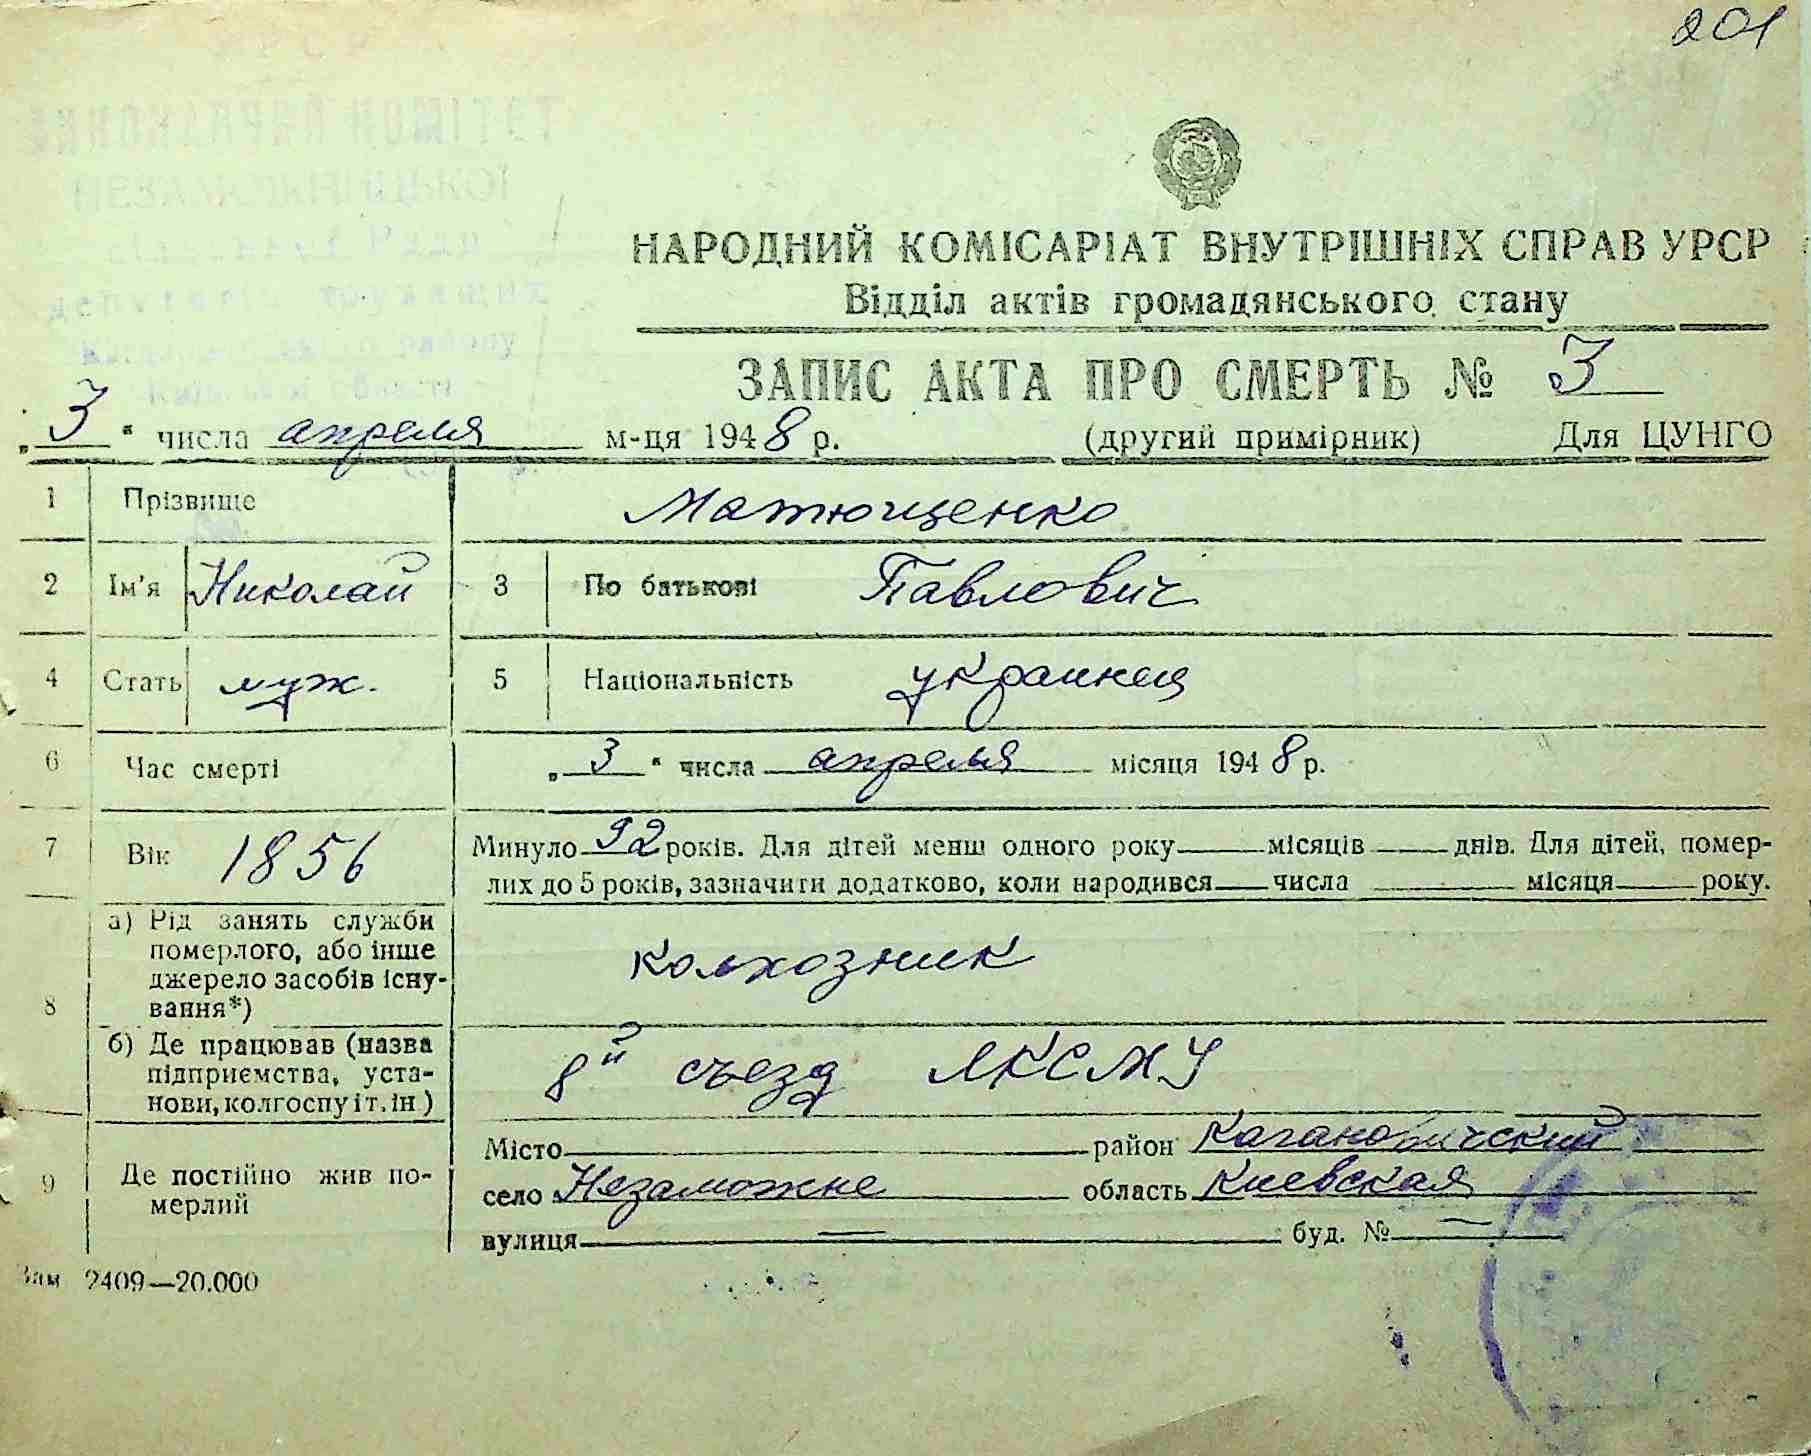 201
НАРОДНИЙ КОМІСАРІАТ ВНУТРІШНІХ СПРАВ УРСР
Відділ актів громадянського стану
ЗАПИС АКТА ПРО СМЕРТЬ № 3
„3“ числа апреля м-ця 1948 р. (другий примірник) Для ЦУНГО
1 Прізвище Матющенко
2 Ім'я Николай 3 По батькові Павлович
4 Стать муж. 5 Національність украинец
6 Час смерті „3“ числа апреля місяця 1948 р.
7 Вік 1856 Минуло 92 років. Для дітей менш одного року — місяців — днів. Для дітей, помер-
лих до 5 років, зазначити додатково, коли народився — числа — місяця — року.
8 а) Рід занять служби
померлого, або інше
джерело засобів існу-
вання*)
колхозник
б) Де працював (назва
підприємства, уста-
нови, колгоспу і т. ін)
8й съезд ЛКСМУ
9 Де постійно жив по-
мерлий
Місто — район Кагановичский
село Незаможне область Киевская
вулиця — буд. № —
Зам 2409—20.000